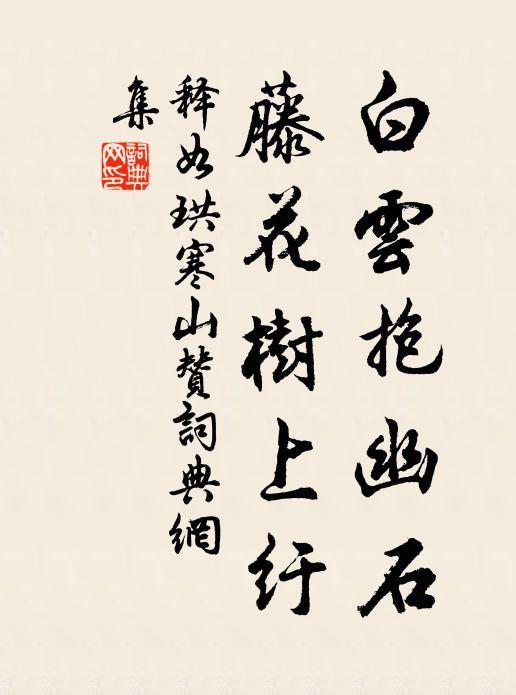 白雲抱幽石
藤花樹上紆
释如珙寒山贊詞典網
集
詞典
网印